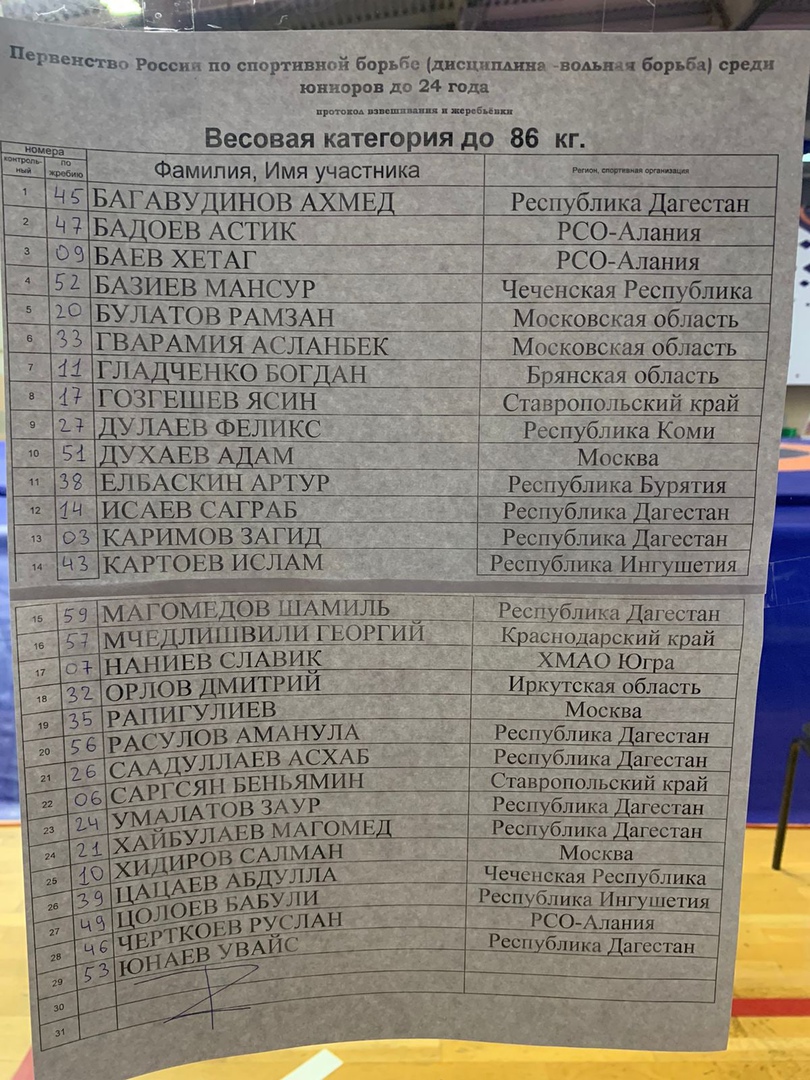 Первенство России по спортивной борьбе (дисциплина -вольная борьба) среди
юниоров до 24 года
протокол взвешивания и жеребьёвки
Весовая категория до 86 кг.
номера
контроль-ный по жребию Фамилия, Имя участника Регион, спортивная организация
1 45 БАГАВУДИНОВ АХМЕД Республика Дагестан
2 47 БАДОЕВ АСТИК РСО-Алания
3 09 БАЕВ ХЕТАГ РСО-Алания
4 52 БАЗИЕВ МАНСУР Чеченская Республика
5 20 БУЛАТОВ РАМЗАН Московская область
6 33 ГВАРАМИЯ АСЛАНБЕК Московская область
7 11 ГЛАДЧЕНКО БОГДАН Брянская область
8 17 ГОЗГЕШЕВ ЯСИН Ставропольский край
9 27 ДУЛАЕВ ФЕЛИКС Республика Коми
10 51 ДУХАЕВ АДАМ Москва
11 38 ЕЛБАСКИН АРТУР Республика Бурятия
12 14 ИСАЕВ САГРАБ Республика Дагестан
13 03 КАРИМОВ ЗАГИД Республика Дагестан
14 43 КАРТОЕВ ИСЛАМ Республика Ингушетия
15 59 МАГОМЕДОВ ШАМИЛЬ Республика Дагестан
16 57 МЧЕДЛИШВИЛИ ГЕОРГИЙ Краснодарский край
17 07 НАНИЕВ СЛАВИК ХМАО Югра
18 32 ОРЛОВ ДМИТРИЙ Иркутская область
19 35 РАПИГУЛИЕВ Москва
20 56 РАСУЛОВ АМАНУЛА Республика Дагестан
21 26 СААДУЛЛАЕВ АСХАБ Республика Дагестан
22 06 САРГСЯН БЕНЬЯМИН Ставропольский край
23 24 УМАЛАТОВ ЗАУР Республика Дагестан
24 21 ХАЙБУЛАЕВ МАГОМЕД Республика Дагестан
25 10 ХИДИРОВ САЛМАН Москва
26 39 ЦАЦАЕВ АБДУЛЛА Чеченская Республика
27 49 ЦОЛОЕВ БАБУЛИ Республика Ингушетия
28 46 ЧЕРТКОЕВ РУСЛАН РСО-Алания
29 53 ЮНАЕВ УВАЙС Республика Дагестан
30
31